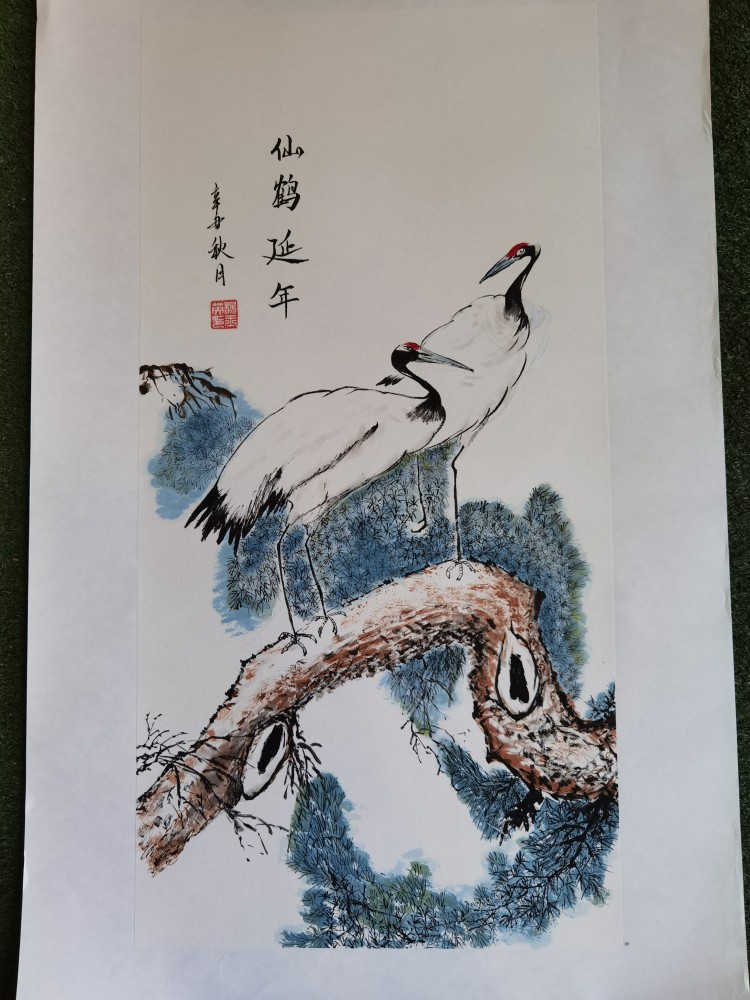 仙鹤延年
辛丑秋月